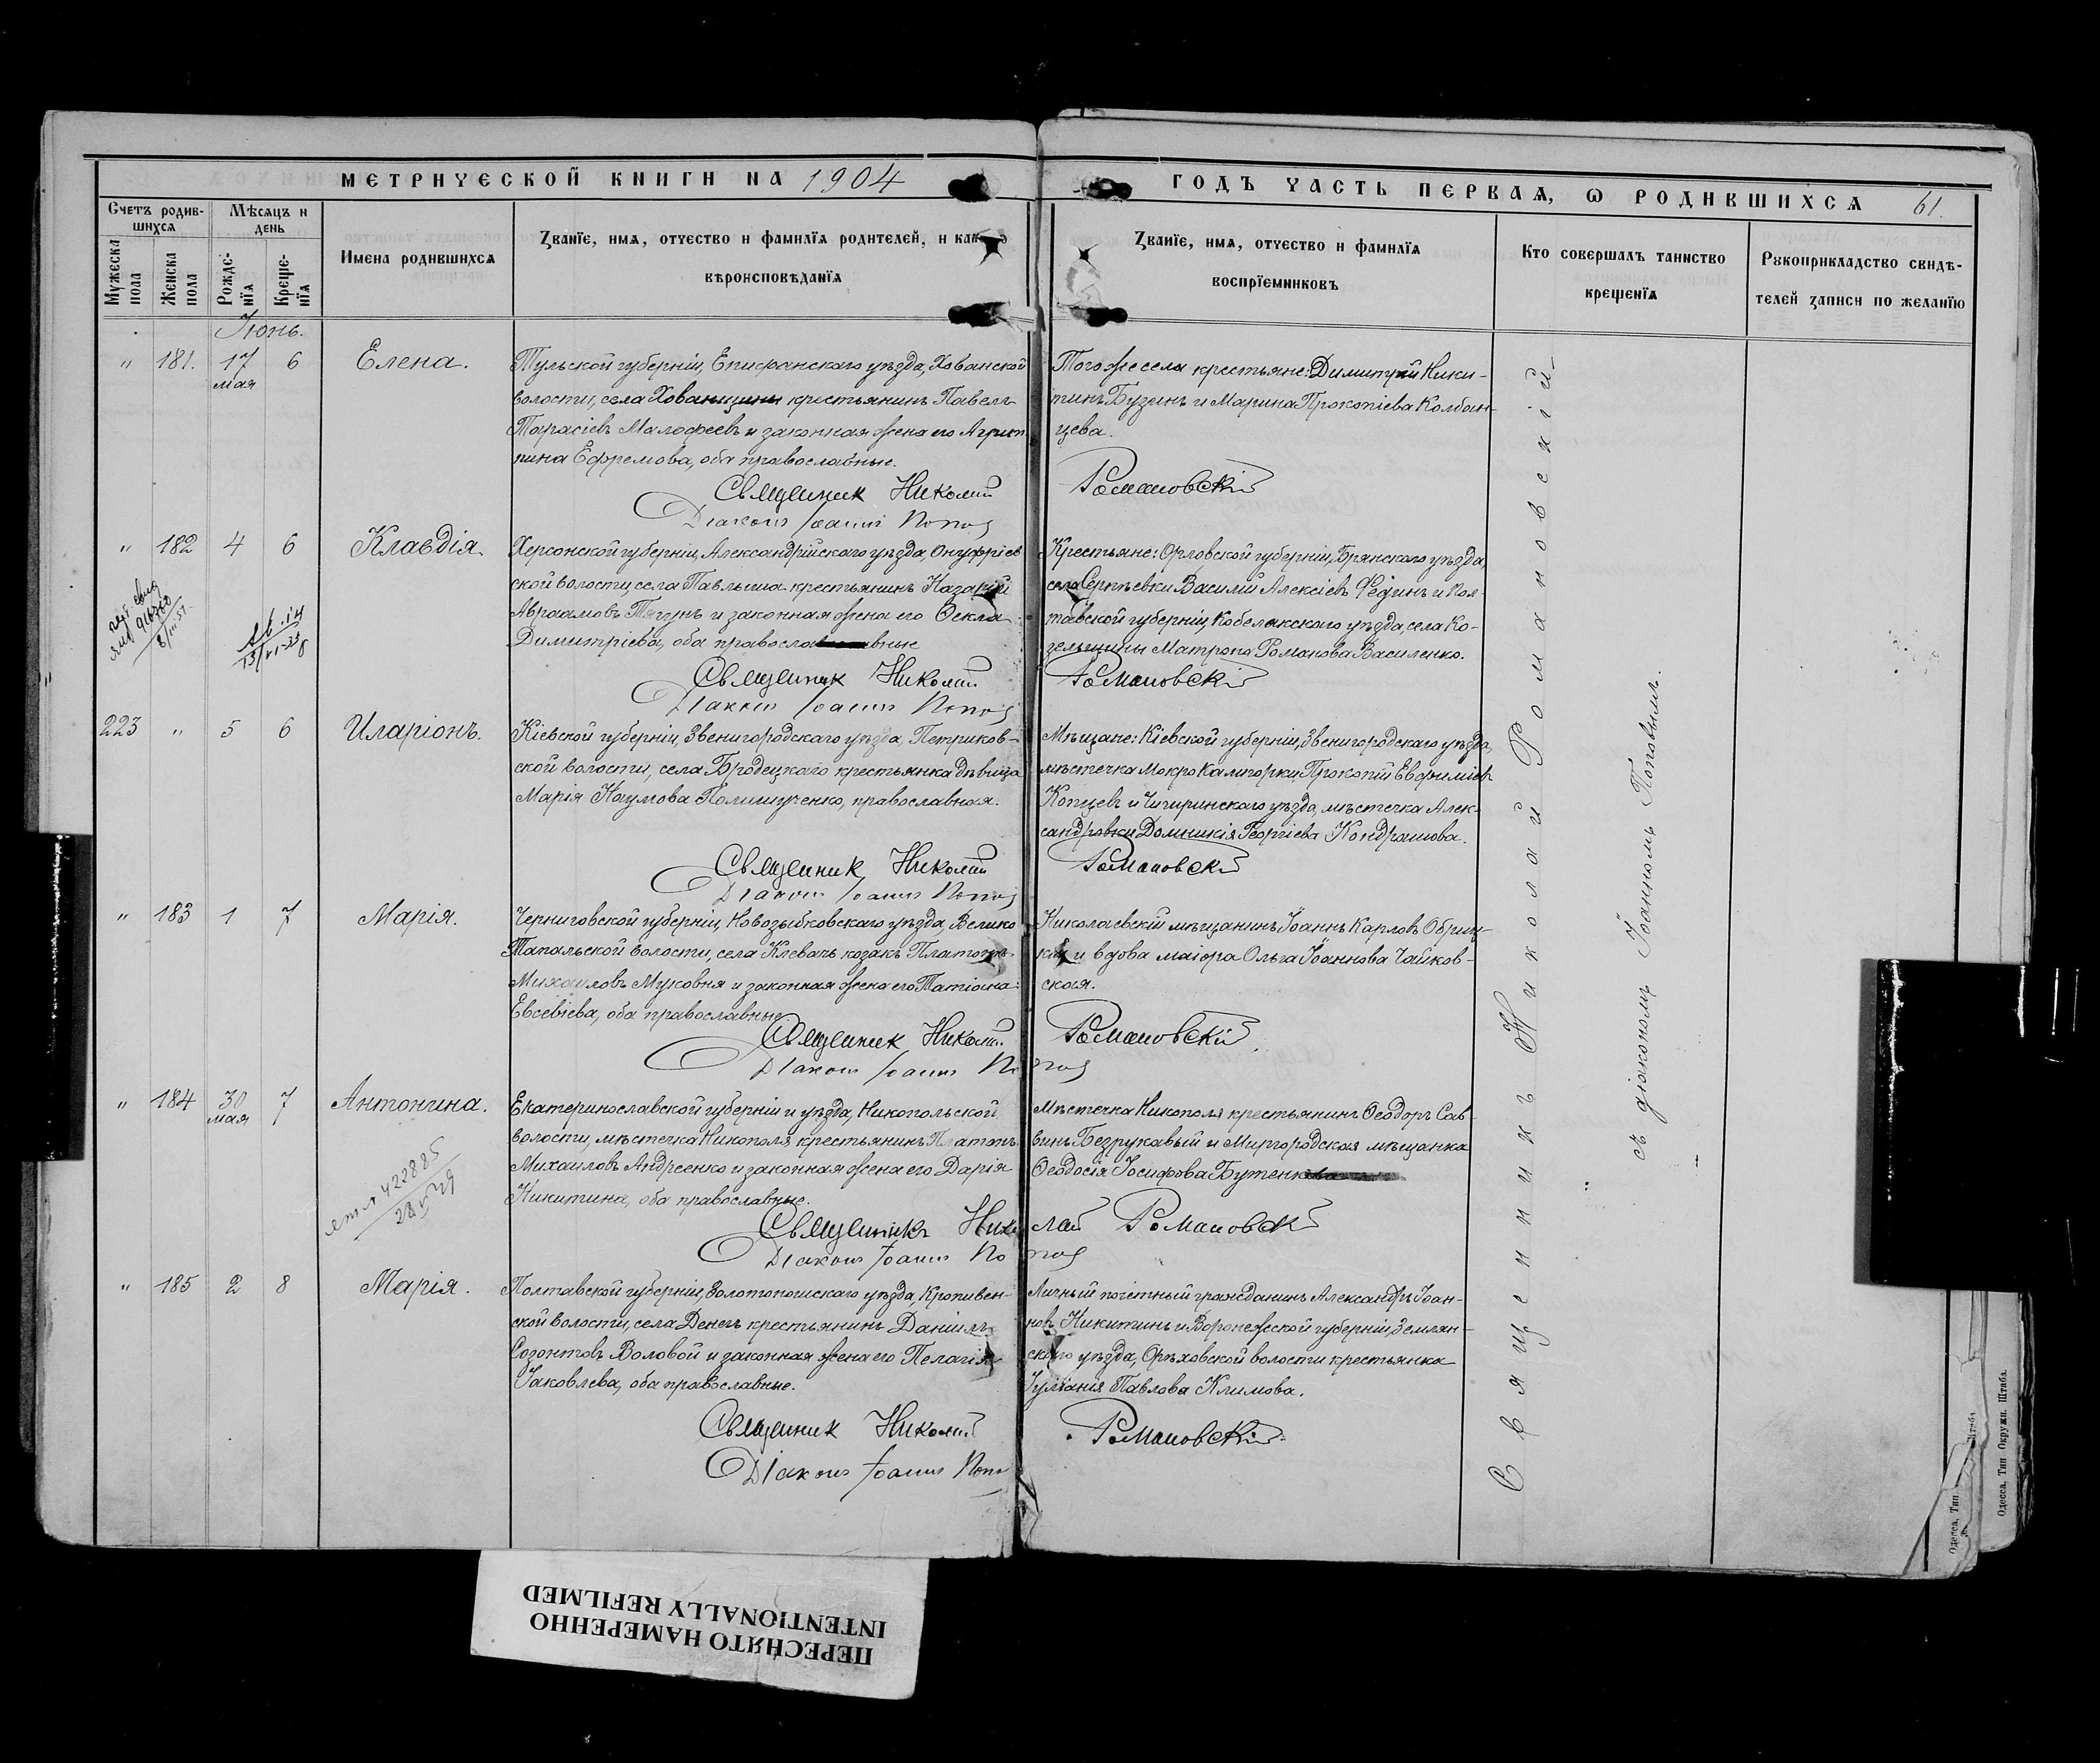 МЕТРИЧЕСКОЙ КНИГИ НА 1904
ГОДЪ ЧАСТЬ ПЕРВАЯ, Ѡ РОДИВШИХСЯ 61.
Счетъ родив-
шихся
Мужеска
пола
Женска
пола
Мѣсяцъ и
день
Рожде-
нїя
Креще-
нїя
Имена родившихся
Званїе, имя, отчество и фамилїя родителей, и
вѣроисповѣданїя
Званїе, имя, отчество и фамилїя
воспрїемниковъ
Кто совершалъ таинство
крещенїя
Рукоприкладство свидѣ-
телей записи по желанїю
Іюнь.
" 181. 17 6 Елена.
мая
Тульской губерніи, Епифанскаго уѣзда, Хованской
волости, села Хованщины крестьянинъ Павелъ
Тарасіевъ Малофеевъ и законная жена его Агрип-
пина Ефремова, оба православные.
Того же села крестьяне: Димитрій Ники-
тинъ Бузинъ и Марина Прокопіева Колбан-
цева.
Священникъ Николай Романовскій
Діаконъ Іоаннъ Попов
" 182 4 6 Клавдія.
Херсонской губерніи, Александрійскаго уѣзда, Онуфріев-
ской волости, села Павлыша крестьянинъ Назарій
Авраамовъ Тягунъ и законная жена его Ѳекла
Димитріева, оба православные
Крестьяне: Орловской губерніи, Брянскаго уѣзда,
села Сергѣевки Василій Алексіевъ Ѳединъ и Пол-
тавской губерніи, Кобелякскаго уѣзда, села Ко-
зельщины Матрона Романова Василенко.
Священникъ Николай Романовскій
Діаконъ Іоаннъ Попов
223 " 5 6 Иларіонъ.
Кіевской губерніи, Звенигородскаго уѣзда, Петриков-
ской волости, села Бродецкаго крестьянка дѣвица
Марія Наумова Полищученко, православная.
Мѣщане: Кіевской губерніи, Звенигородскаго уѣзда,
мѣстечка Мокро Калигорки Прокопій Евфиміевъ
Копцевъ и Чигиринскаго уѣзда, мѣстечка Алек-
сандровки Домникія Георгіева Кондрашова.
Священникъ Николай Романовскій
Діаконъ Іоаннъ Попов
" 183 1 7 Марія.
Черниговской губерніи, Новозыбковскаго уѣзда, Велико
Тапальской волости, села Клевань козакъ Платонъ
Михаиловъ Муковня и законная жена его Татіана
Евсевіева, оба православные
Николаевскій мѣщанинъ Іоаннъ Карловъ
и вдова маіора Ольга Іоаннова Чайков-
ская.
Священникъ Николай Романовскій
Діаконъ Іоаннъ Попов
" 184 30 7 Антонина.
мая
422885
Екатеринославской губерніи и уѣзда, Никопольской
волости, мѣстечка Никополя крестьянинъ Платонъ
Михаиловъ Андреенко и законная жена его Дарія
Никитина, оба православные.
Мѣстечка Никополя крестьянинъ Ѳеодоръ Сав-
винъ Безрукавый и Миргородская мѣщанка
Ѳеодосія Іосифова Бутенкова
Священникъ Николай Романовскій
Діаконъ Іоаннъ Попов
" 185 2 8 Марія.
Полтавской губерніи, Золотоношскаго уѣзда, Кропивен-
ской волости, села Денегъ крестьянинъ Даніилъ
Созонтовъ Воловой и законная жена его Пелагія
Іаковлева, оба православные.
Личный почетный гражданинъ Александръ Іоан-
новъ Никитинъ и Воронежской губерніи, Землян-
скаго уѣзда, Орѣховской волости крестьянка
Іуліанія Павлова Климова.
Священникъ Николай Романовскій
Діаконъ Іоаннъ Попов
Священникъ Николай Романовскій
съ діакономъ Іоанномъ Поповымъ.
Одесса, Тип
Одесса, Тип Окружн. Штаба.
ПЕРЕСНЯТО НАМЕРЕННО
INTENTIONALLY REFILMED